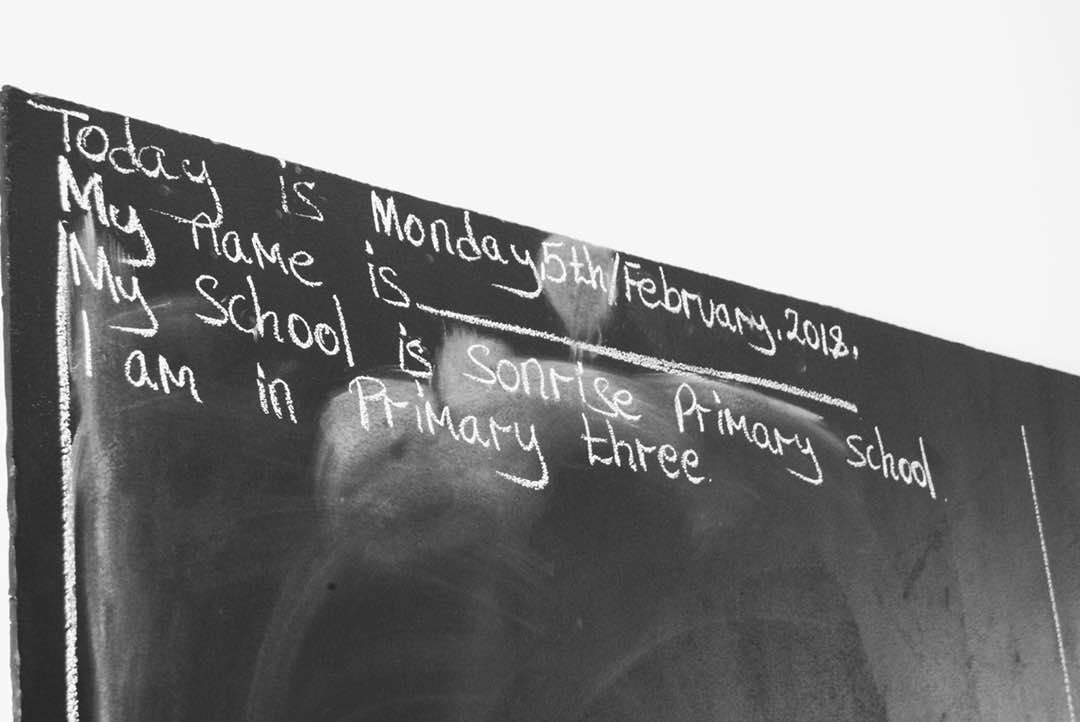 Today is Monday 5th/February, 2018.
My name is
My school is sonrise Primary school.
I am in Primary three.